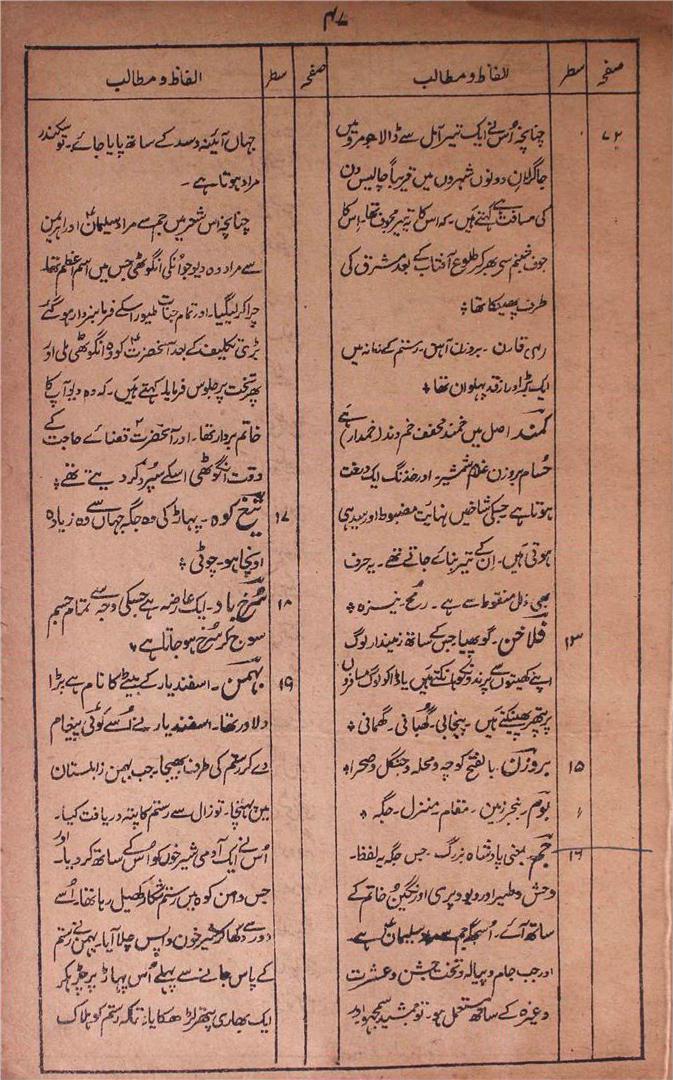 ۴۷
صفحہ سطر الفاظ و مطالب
۷۲ چنانچہ اُس نے ایک تیر آمل سے ڈالا جو مرو میں
جاگرا۔ ان دونوں شہروں میں تقریباً چالیس دن
کی مسافت ہے کہتے ہیں۔ کہ اس کا یہ تیر مجوف تھا۔ اس کا
جوف شبنم سی بھر کر طلوع آفتاب کے بعد مشرق کی
طرف پھینکا تھا؛
رہی قارن۔ بروزن آہن۔ رستم کے زمانہ میں
ایک بڑا پہلوان تھا؛
کمند اصل میں خمند مخفف خم دند (خمدار) ہے
حُسام بروزن غلام شمشیر اور خدنگ ایک درخت
ہوتا ہے جسکی شاخیں نہایت مضبوط اور سیدہی
ہوتی ہیں۔ اِن کے تیر بنائے جاتے تھے۔ یہ حرف
بھی ذال منقوط سے ہے۔ رمح۔ نیزہ؛
۱۳ فلاخن۔ گوپھیا جس کے ساتھ زمیندار لوگ
اپنے کھیتوں سے پرندوں کو ہانکتے ہیں یا ڈاکو لوگ مسافروں
پر پتھر پھینکتے ہیں۔ پنجابی۔ گھبانی۔ گھمانی؛
۱۵ بروزن۔ بالفتح کوچہ و محلہ و جنگل و صحرا؛
بوم۔ بنجر زمین۔ مقام منزل۔ جگہ؛
۱۶ جم۔ بمعنی پادشاہ بزرگ۔ جس جگہ یہ لفظ۔
وحش و طیر اور دیو و پری اور نگین خاتم کے
ساتھ آئے۔ اُس جگہ جم سلیمانؑ ہے
اور جب جام و پیالہ و تخت جشن و عشرت
وغیرہ کے ساتھ مستعمل ہو۔ تو جمشید سمجہو اور
صفحہ سطر الفاظ و مطالب
جہاں آئینہ و سد کے ساتھ پایا جائے۔ تو سکندر
مراد ہوتا ہے۔
چنانچہ اس شعر میں جم سے مراد سلیمانؑ اور اہرمن
سے مراد وہ دیو جو انکی انگوٹھی جس میں اسم اعظم تھا۔
چرا کر لیگیا۔ اور تمام جنات طیور اسکے فرمانبردار ہو گئے
بڑی تکلیف کے بعد آنحضرتؑ کو وہ انگوٹھی ملی اور
پھر تخت پر جلوس فرمایا۔ کہتے ہیں۔ کہ وہ دیو آپ کا
خاتم بردار تھا۔ اور آنحضرتؑ قضائے حاجت کے
وقت انگوٹھی اسکے سپرد کر دیتے تھے؛
۱۷ تیغ کوہ۔ پہاڑ کی وہ جگہ جہاں سے وہ زیادہ
اونچا ہو۔ چوٹی؛
۱۸ سُرخ باد۔ ایک عارضہ ہے جسکی وجہ سے تمام جسم
سوج کر سُرخ ہو جاتا ہے؛
۱۹ بہمن۔ اسفندیار کے بیٹے کا نام ہے بڑا
دلاور تھا۔ اسفندیار نے اُسے کوئی پیغام
دے کر رستم کی طرف بھیجا۔ جب بہمن زابلستان
میں پہنچا۔ تو زال سے رستم کا پتہ دریافت کیا۔
اُس نے ایک آدمی شیر خوں کو اُس کے ساتھ کر دیا۔ اور
جس دامن کوہ میں رستم شکار کھیل رہا تھا۔ اُسے
دور سے دکھا کر شیر خون واپس چلا آیا۔ بہمن نے رستم
کے پاس جانے سے پہلے اُس پہاڑ پر چڑہ کر
ایک بھاری پتھر لڑھکایا۔ تاکہ رستم کو ہلاک